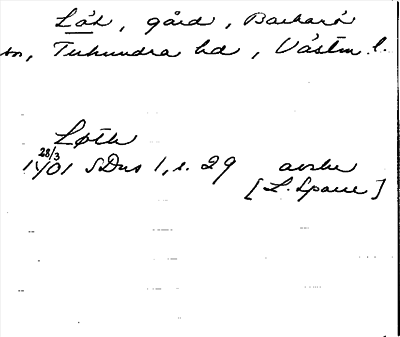 Låh, gård, Barkarö
sn, Tuhundra hd, Västm. l.
Løth
28/3
1401 SDns 1, s. 29 avskr
[L. Spare]